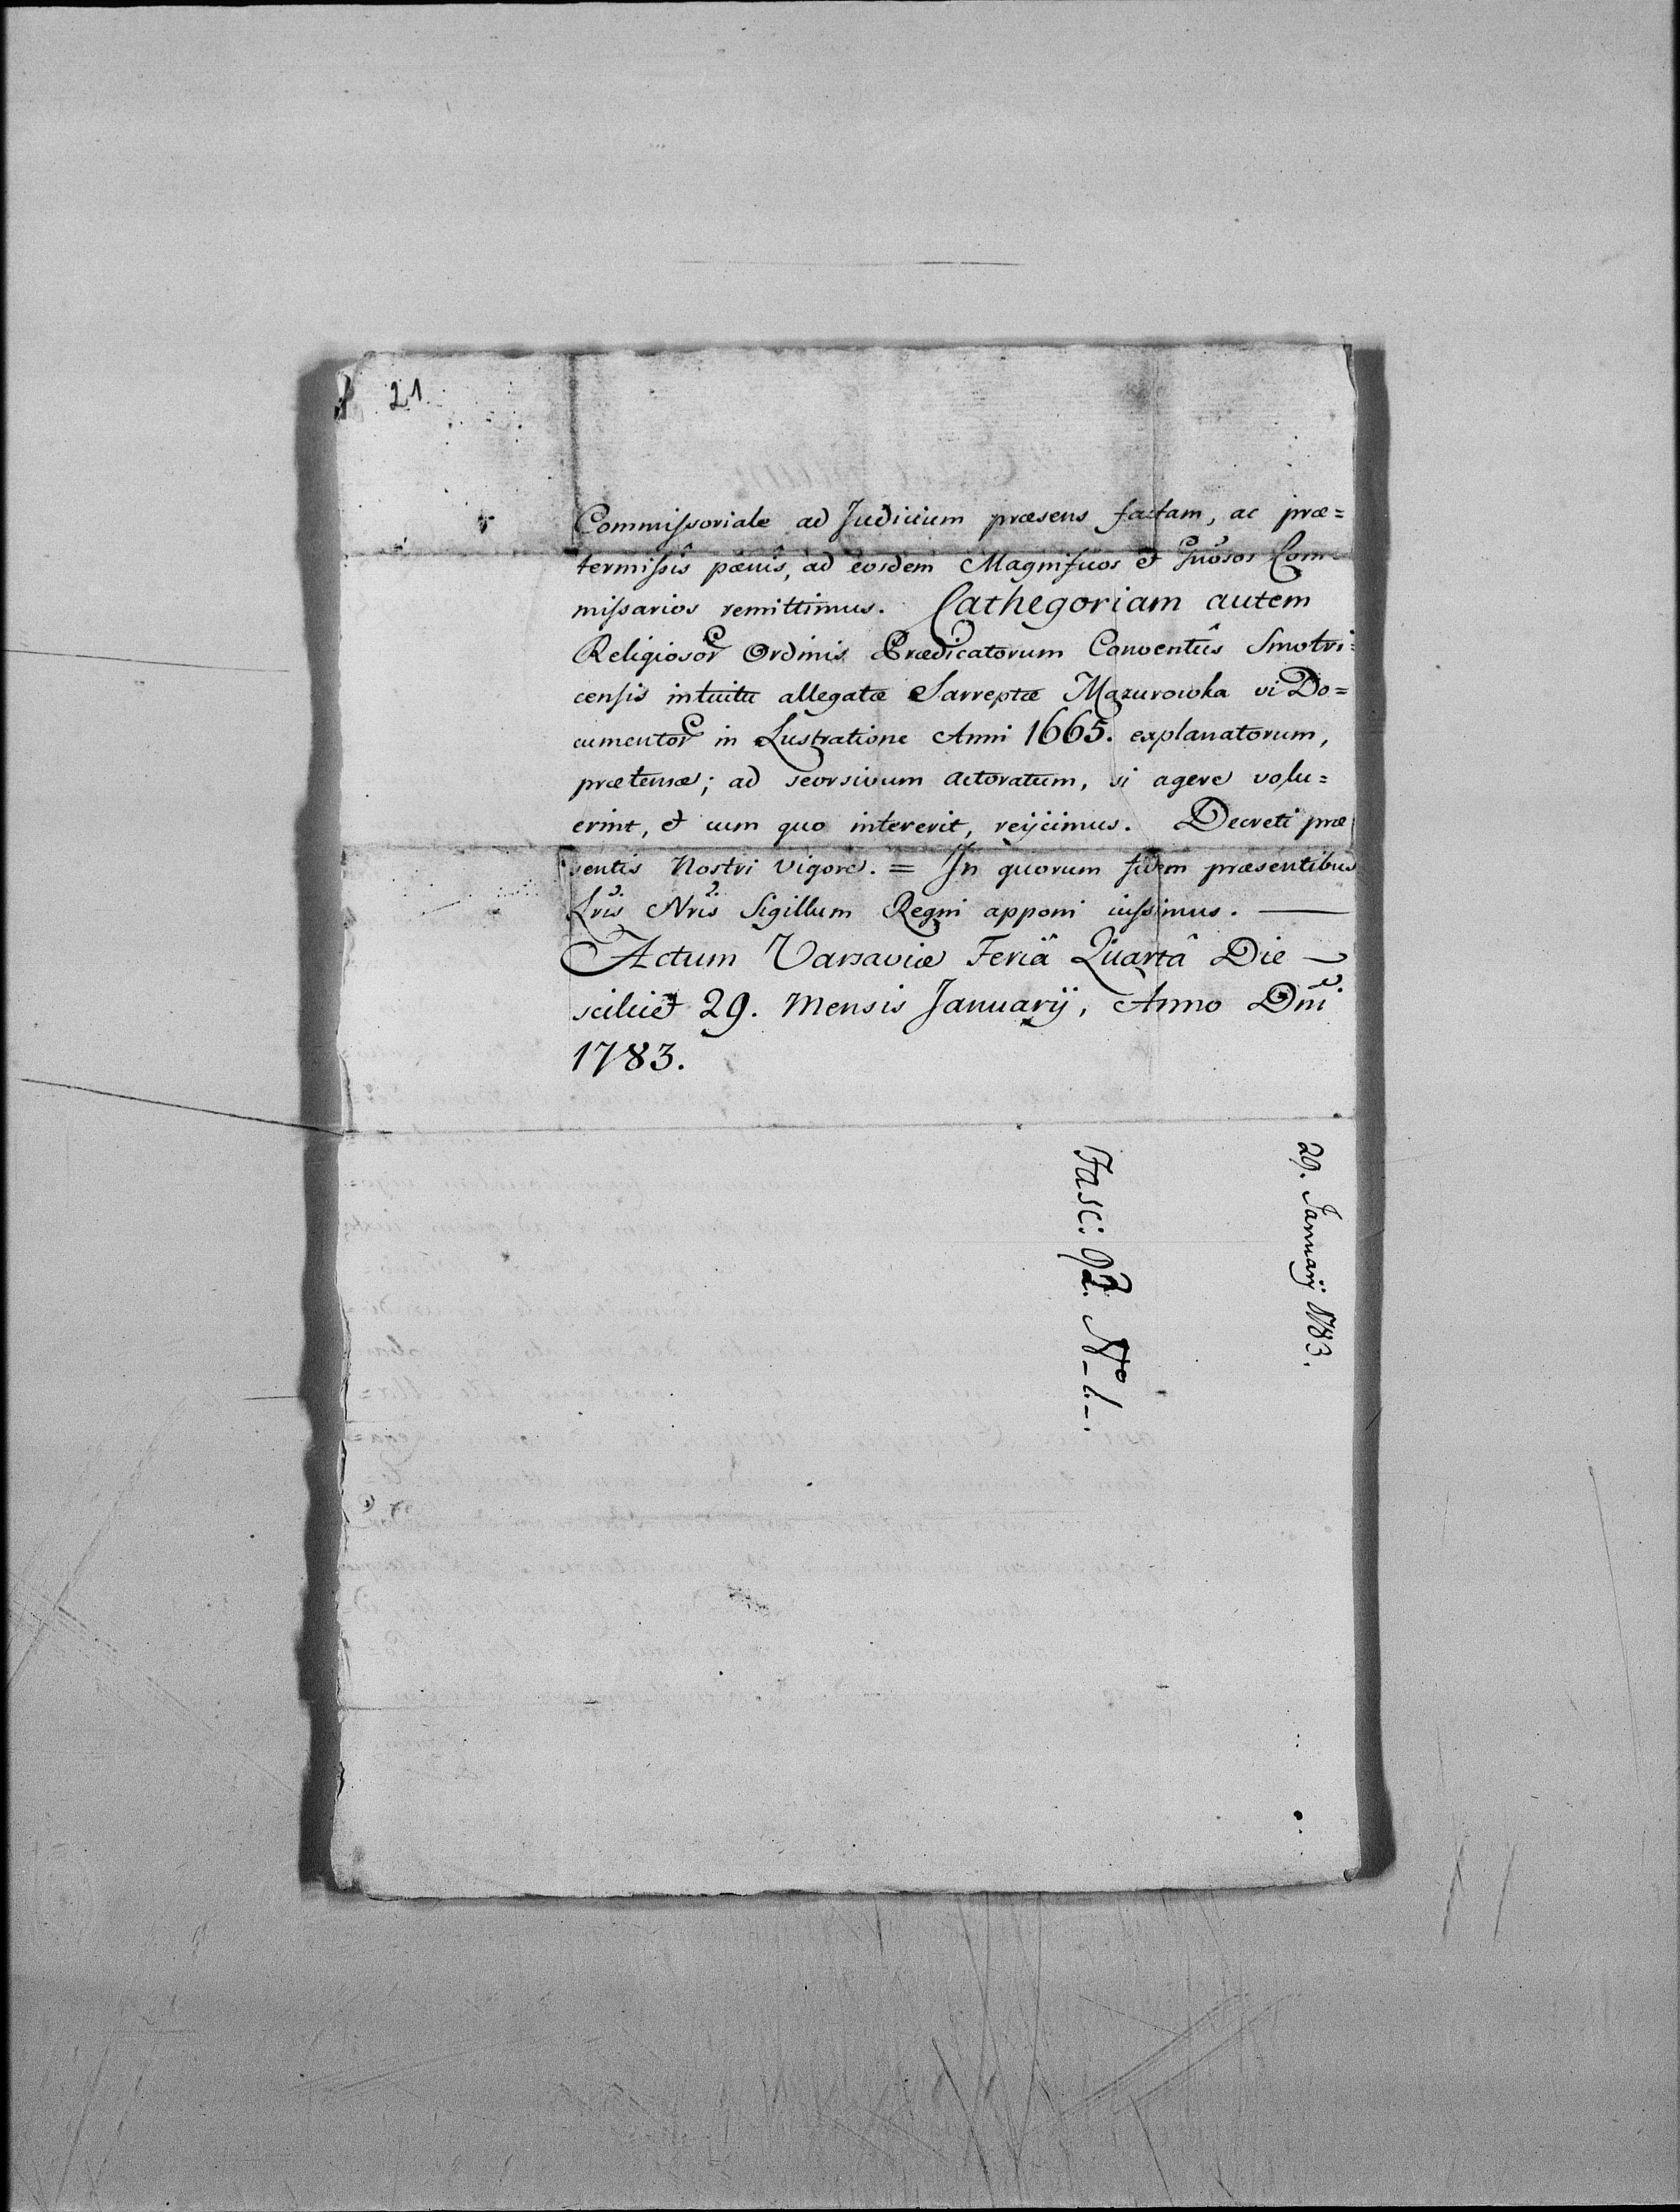 21
Commissoriale ad Judicium præsens factam, ac præ=
termissîs pœnîs, ad eosdem Magnificos et Gnosos Com=
missarios remittimus. Cathegoriam autem
Religiosor Ordinis Prædicatorum Conventûs Smotri=
censis intuitu allegatæ Sarreptæ Mazurowka vi Do=
cumentor in Lustratione Anni 1665. explanatorum,
prætensæ; ad seorsivum actoratum, si agere volu=
erint, et cum quo intererit, reijcimus. Decreti præ
sentis Nostri vigore. = In quorum fidem præsentibus
Lris Nris Sigillum Regni apponi iussimus. —
Actum Varsaviæ Feriâ Quartâ Die —
scilicet 29. Mensis Januarij, Anno Dni
1783.
29. Januarij 1783.
Fasc: 92. No -1-.